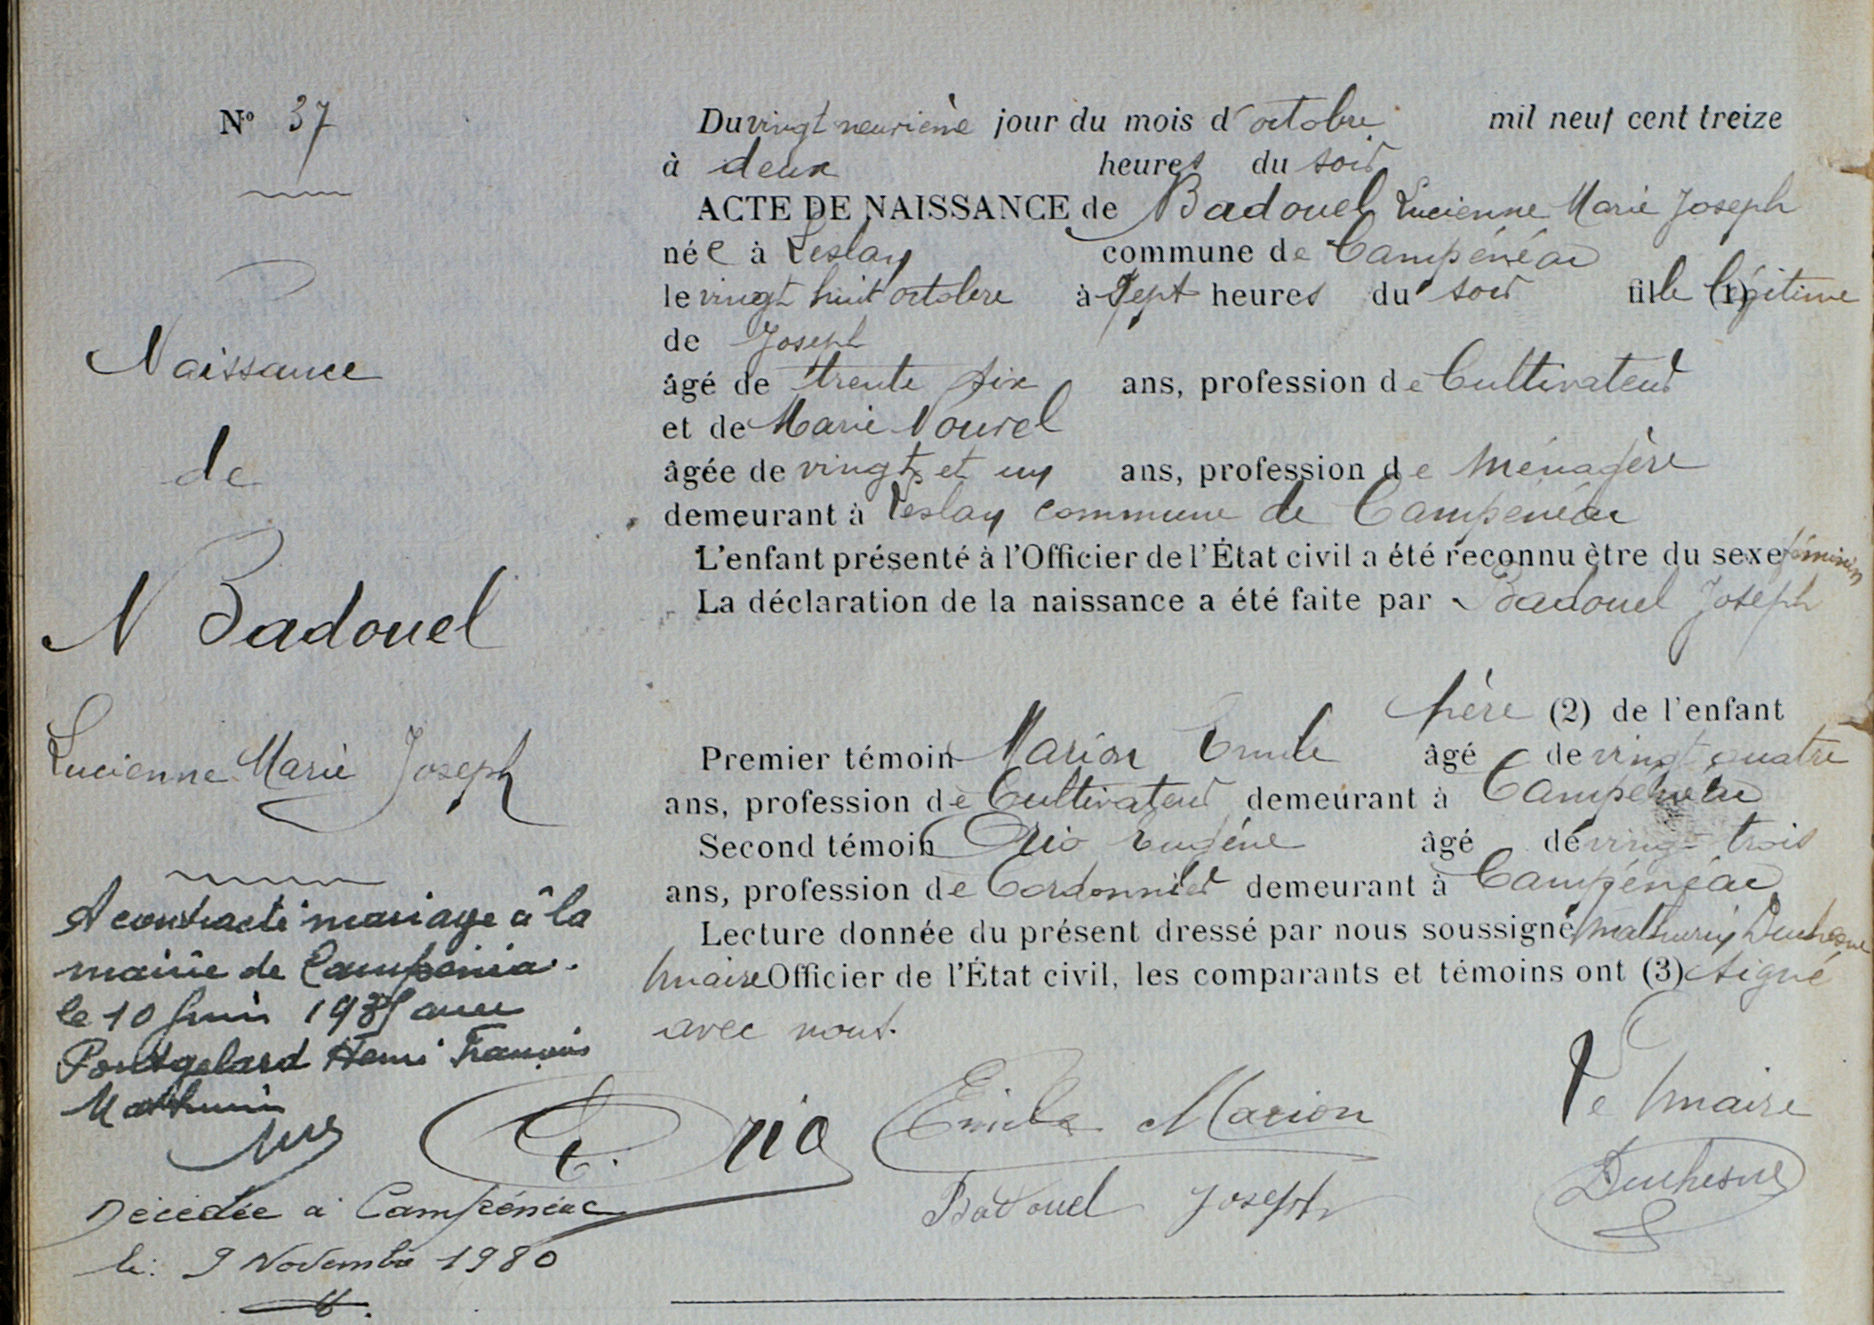 N° 37
Naissance
de
N Badouel
Lucienne Marie Joseph
A contracté mariage à la
mairie de Campénéac
le 10 Juin 1935 avec
Pontgelard Henri François
Mathurin
Décédée à Campénéac
le : 9 Novembre 1980
Du vingt neuvième jour du mois d'octobre mil neuf cent treize
à deux heures du soir
ACTE DE NAISSANCE de Badouel Lucienne Marie Joseph
née à Leslay commune de Campénéac
le vingt huit octobre à sept heures du soir fille (1) légitime
de Joseph
âgé de trente six ans, profession de Cultivateur
et de Marie Nourel
âgée de vingt et un ans, profession de Ménagère
demeurant à Leslay commune de Campénéac
L'enfant présenté à l'Officier de l'État civil a été reconnu être du sexe féminin
La déclaration de la naissance a été faite par Badouel Joseph
père (2) de l'enfant
Premier témoin Marion Emile âgé de vingt quatre
ans, profession de Cultivateur demeurant à Campénéac
Second témoin Orio Eugène âgé de vingt trois
ans, profession de Cordonnier demeurant à Campénéac
Lecture donnée du présent dressé par nous soussigné, Mathurin Duchesne
maire Officier de l'État civil, les comparants et témoins ont (3) signé
avec nous.
E. Orio Emile Marion Le maire
Badouel Joseph Duchesne